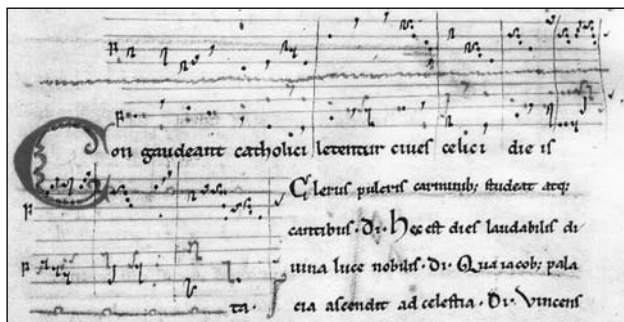 Con gaudeant catholici letentur ciues celici die is
Clerus pulcris carminib; studeat atq;
cantibus. Di. Hec est dies laudabilis di
uina luce nobilis. Di. Qua iacob; pala
ta. cia ascendit ad celestia. Di. Vincens